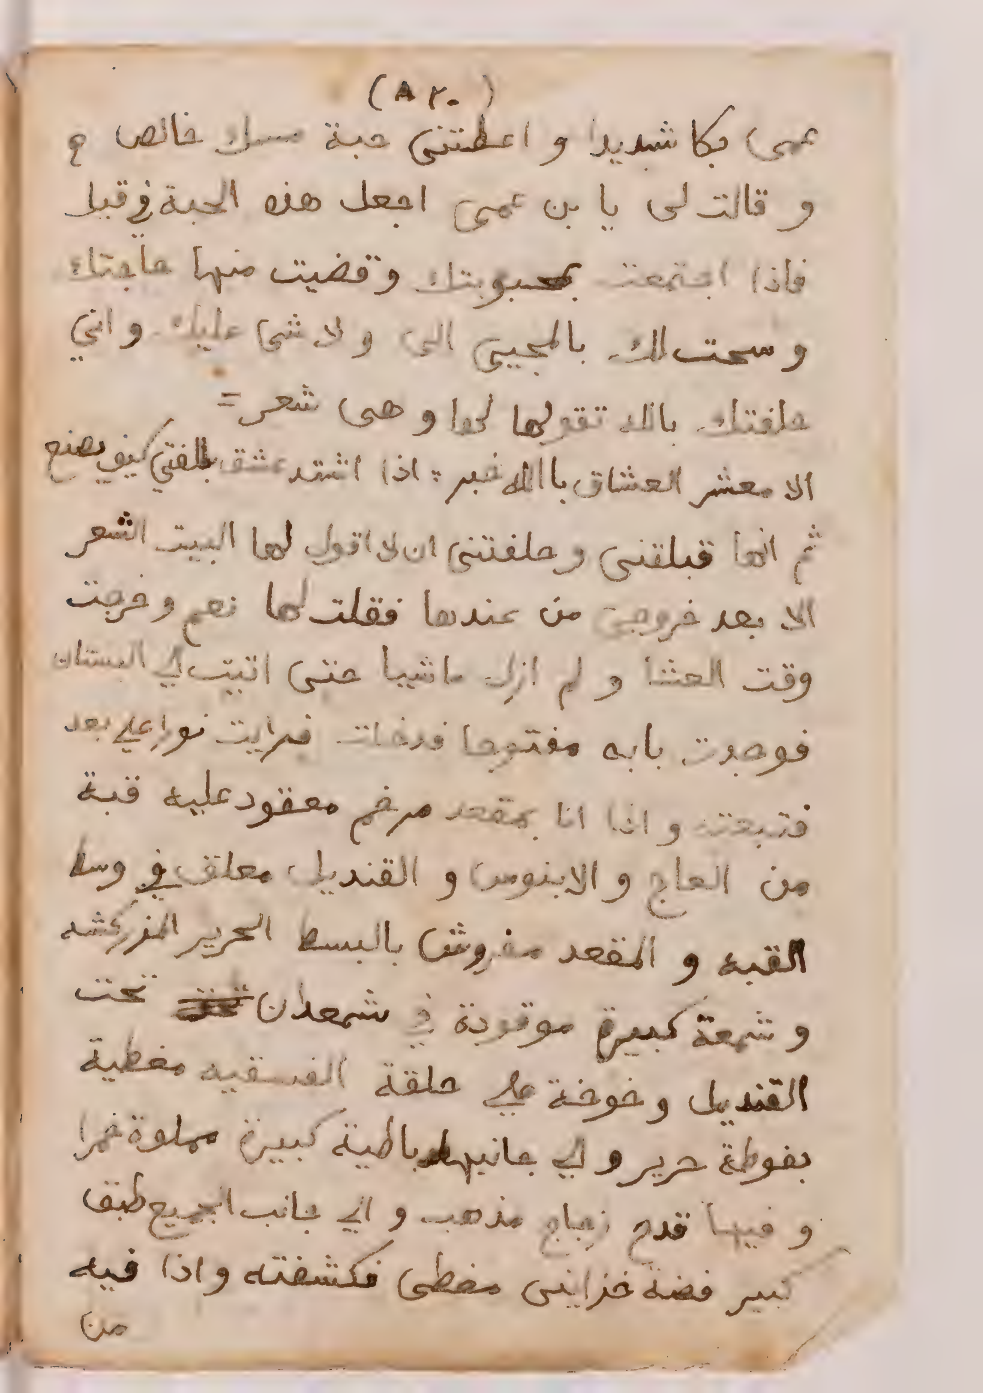 (٨٢٠)
عمى بكا شديدا و اعطتنى حبة مسك خالص
و قالت لى يا بن عمى اجعل هذه الحبة في قبل
فاذا اجتمعت بمحبوبتك وقضيت منها حاجتك
و سمحت لك بالمجيى الى و لا شى عليك و اني
حلفتك بالله تقولها لها و هى شعر =
الا معشر العشاق باالله خبر : اذا اشتد عشق بالفتي كيف يصنع
ثم انها قبلقنى و حلفتنى ان لا اقول لها البيت الشعر
الا بعد خروجى من عندها فقلت لها نعم و خرجت
وقت العشا و لم ازل ماشيا حتى اتيت الي البستان
فوجدت بابه مفتوحا فدخلت فرايت نورا علي بعد
فتبعته و اذا انا بمقعد مرخم معقود عليه قبة
من العاج و الابنوس و القنديل معلق في وسط
القبه و المقعد مفروش بالبسط الحرير المزركشه
و شمعة كبيرة موقودة في شمعدان تحت
القنديل و خوخة علي حلقة الفسقيه مغطية
بفوطة حرير و الي جانبها باطية كبيرة مملوة خمرا
و فيها قدح زجاج مذهب و الي جانب الجميع طبق
كبير فضة خزاينى مغطى فكشفته و اذا فيه
من